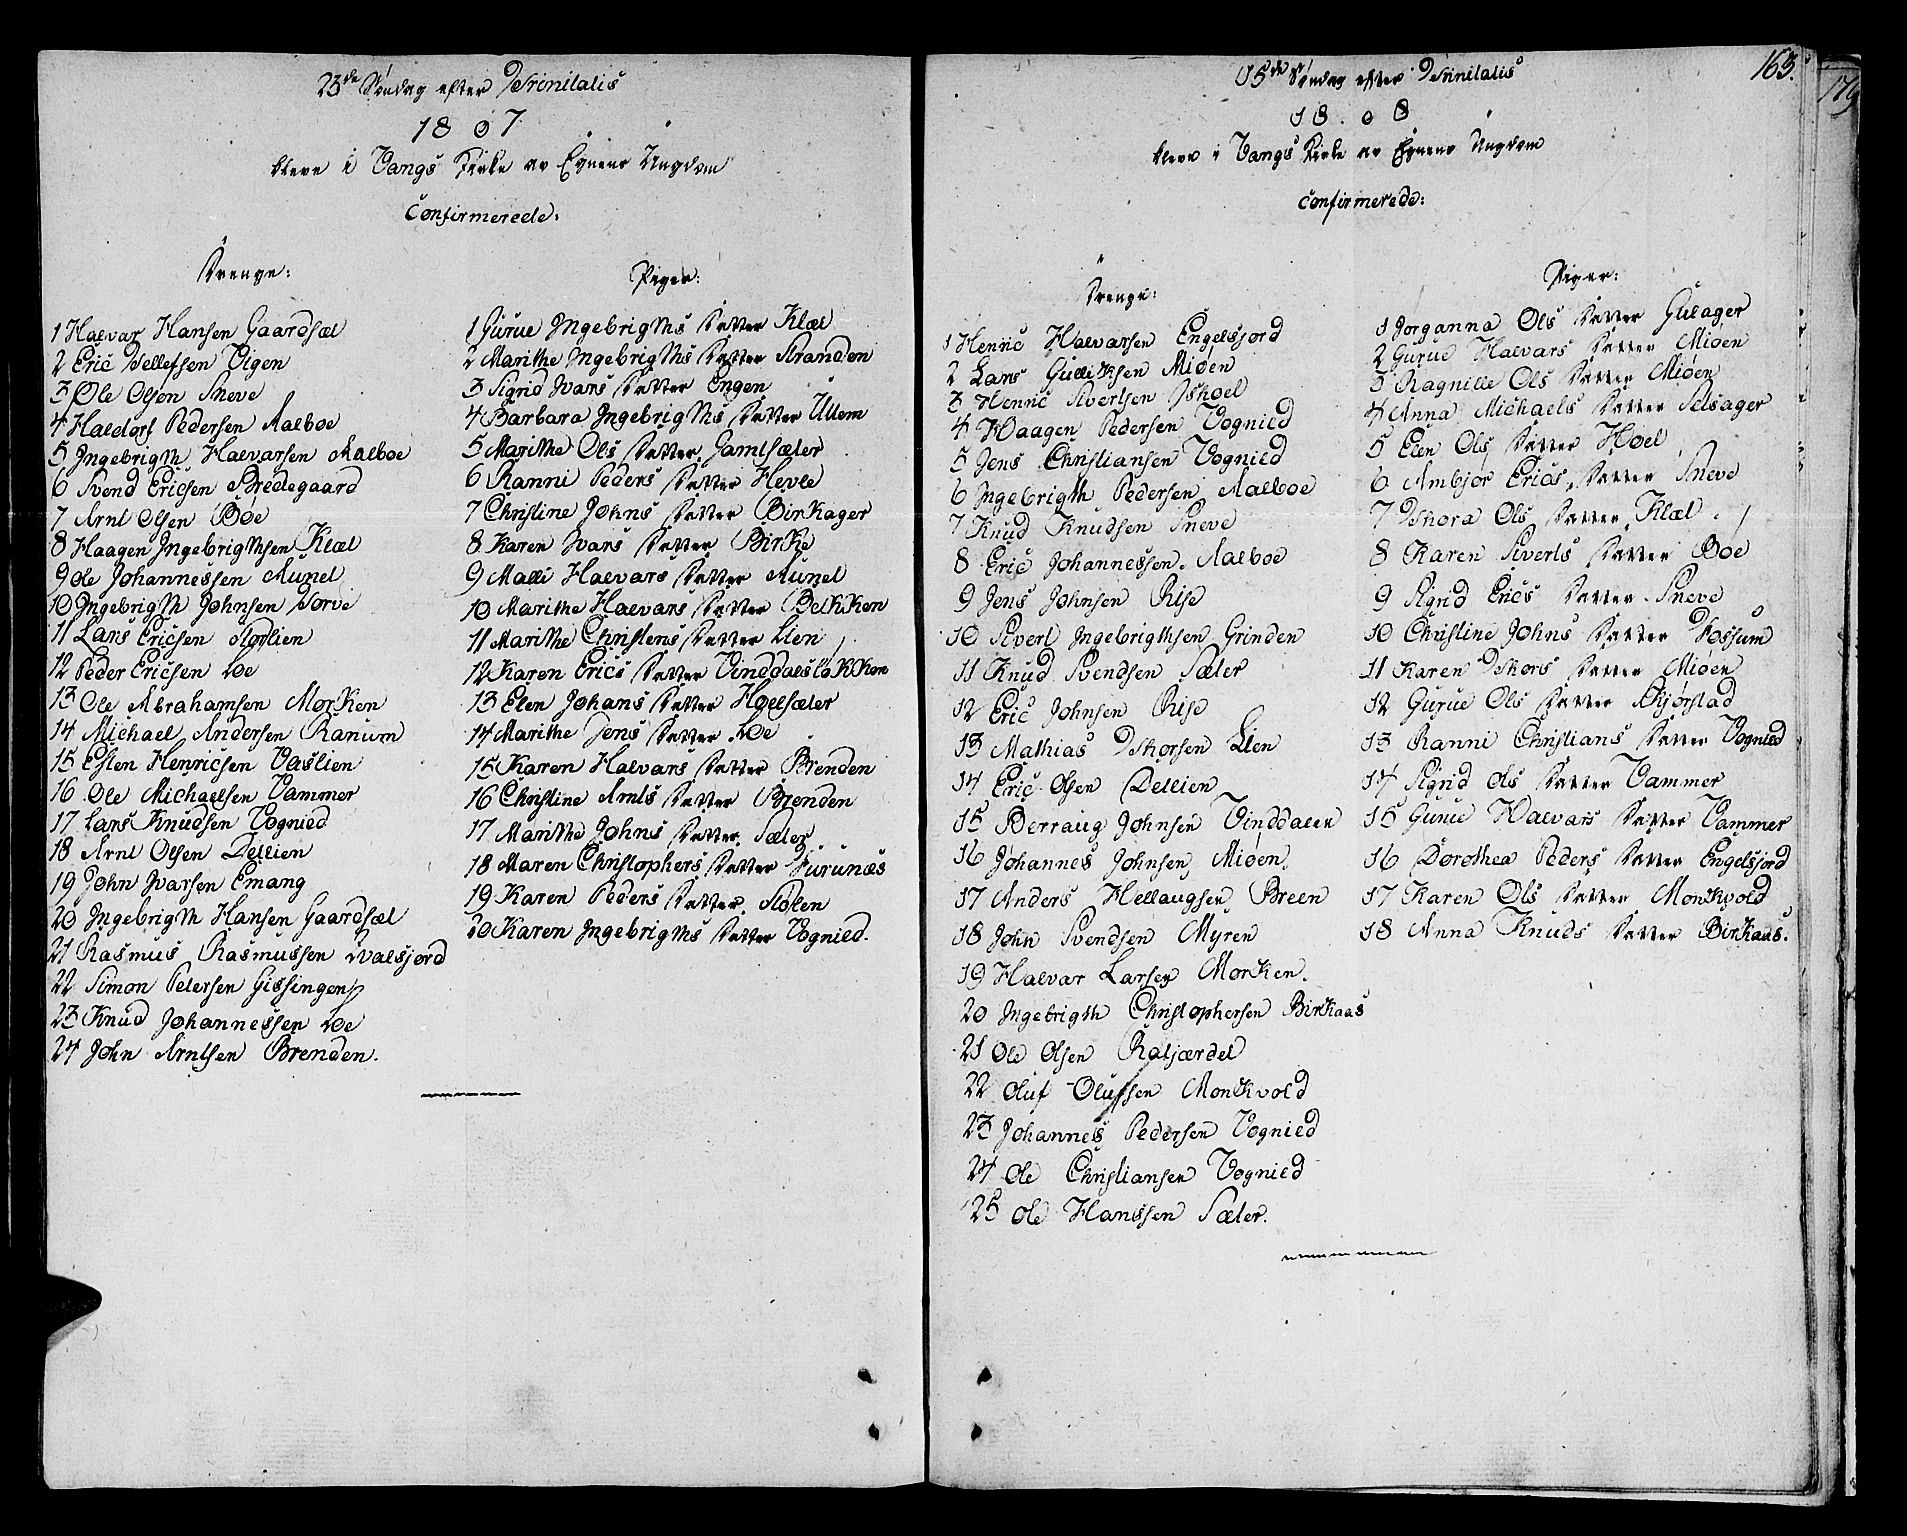 23de Søndag efter Trinitatis
1807
bleve i Vangs Kirke av Egnens Ungdom
Confirmerede:
Drenge:
1 Halvar Hansen Gaardsæl
2 Eric Dellefsen Vigen
3 Ole Olsen Sneve
4 Haldorf Pedersen Aalboe
5 Ingebrigth Halvarsen Aalboe
6 Svend Ericsen Bredegaard
7 Arnt Olsen Böe
8 Haagen Ingebrigthsen Klæl
9 Ole Johannessen Aunel
10 Ingebrigth Johnsen Sorvie
11 Lars Ericsen Storlien
12 Peder Ericsen Loe
13 Ole Abrahamsen Morken
14 Michael Andersen Ranum
15 Esten Henricsen Vaslien
16 Ole Michaelsen Vammer
17 Lars Knudsen Vognied
18 Arnt Olsen Dellien
19 John Ivarsen Emang
20 Ingebrigth Hansen Gaardsæl
21 Rasmus Rasmussen Hvalsjord
22 Simon Petersen Gissingen
23 Knud Johannessen Loe
24 John Arntsen Brenden.
Piger:
1 Gurue Ingebrigths Datter Klæl
2 Marithe Ingebrigths Datter Stranden
3 Sigrid Ivars Datter Engen
4 Barbara Ingebrigths Datter Ullem
5 Marithe Ols Datter Gamlsæler
6 Ranni Peders Datter Hevle
7 Christine Johns Datter Birkager
8 Karen Ivars Datter Birke
9 Malli Halvars Datter Aunel
10 Marithe Halvars Datter Belkken
11 Marithe Christens Datter Lien
12 Karen Erics Datter Vinddalsløkken
13 Elen Johans Datter Hoelsæler
14 Marithe Jens Datter Loe
15 Karen Halvars Datter Brenden
16 Christine Arnts Datter Brenden
17 Marithe Johns Datter Sæler
18 Maren Christophers Datter Furunæs
19 Karen Peders Datter Stölen
20 Karen Ingebrigths Datter Vognied.
163.
15de Søndag efter Trinitatis
1808
bleve i Vangs Kirke av Egnens Ungdom
Confirmerede:
Drenge:
1 Henric Halvarsen Engelsjord
2 Lars Gulliksen Miøen
3 Henric Sivertsen Ishoel
4 Haagen Pedersen Vognied
5 Jens Christiansen Vognied
6 Ingebrigth Pedersen Aalboe
7 Knud Knudsen Sneve
8 Eric Johannessen Aalboe
9 Jens Johnsen Rise
10 Sivert Ingebrigthsen Grinden
11 Knud Svendsen Sæler
12 Eric Johnsen Rise
13 Mathias Thorsen Lien
14 Eric Olsen Dellien
15 Berraug Johnsen Vinddalen
16 Johannes Johnsen Miøen
17 Anders Hellaugsen Breen
18 John Svendsen Myren
19 Halvar Larsen Morken.
20 Ingebrigth Christophersen Birkaas
21 Ole Olsen Raljærdel
22 Oluf Olufsen Monkvold
23 Johannes Pedersen Vognied
24 Ole Christiansen Vognied
25 Ole Hanssen Sæler.
Piger:
1 Jorganna Ols Datter Gulager
2 Gurue Halvars Datter Miøen
3 Ragnille Ols Datter Miøen
4 Anna Michaels Datter Selsager
5 Elen Ols Datter Hoel
6 Ambjor Erics Datter Sneve
7 Thora Ols Datter Klæl
8 Karen Siverts Datter Boe
9 Sigrid Erics Datter Sneve
10 Christine Johns Datter Fossum
11 Karen Thors Datter Miøen
12 Gurue Ols Datter Skjørstad
13 Ranni Christians Datter Vognied
14 Sigrid Ols Datter Vammer
15 Gurue Halvars Datter Vammer
16 Dorothea Peders Datter Engelsjord
17 Karen Ols Datter Monkvold
18 Anna Knuds Datter Birkaas.